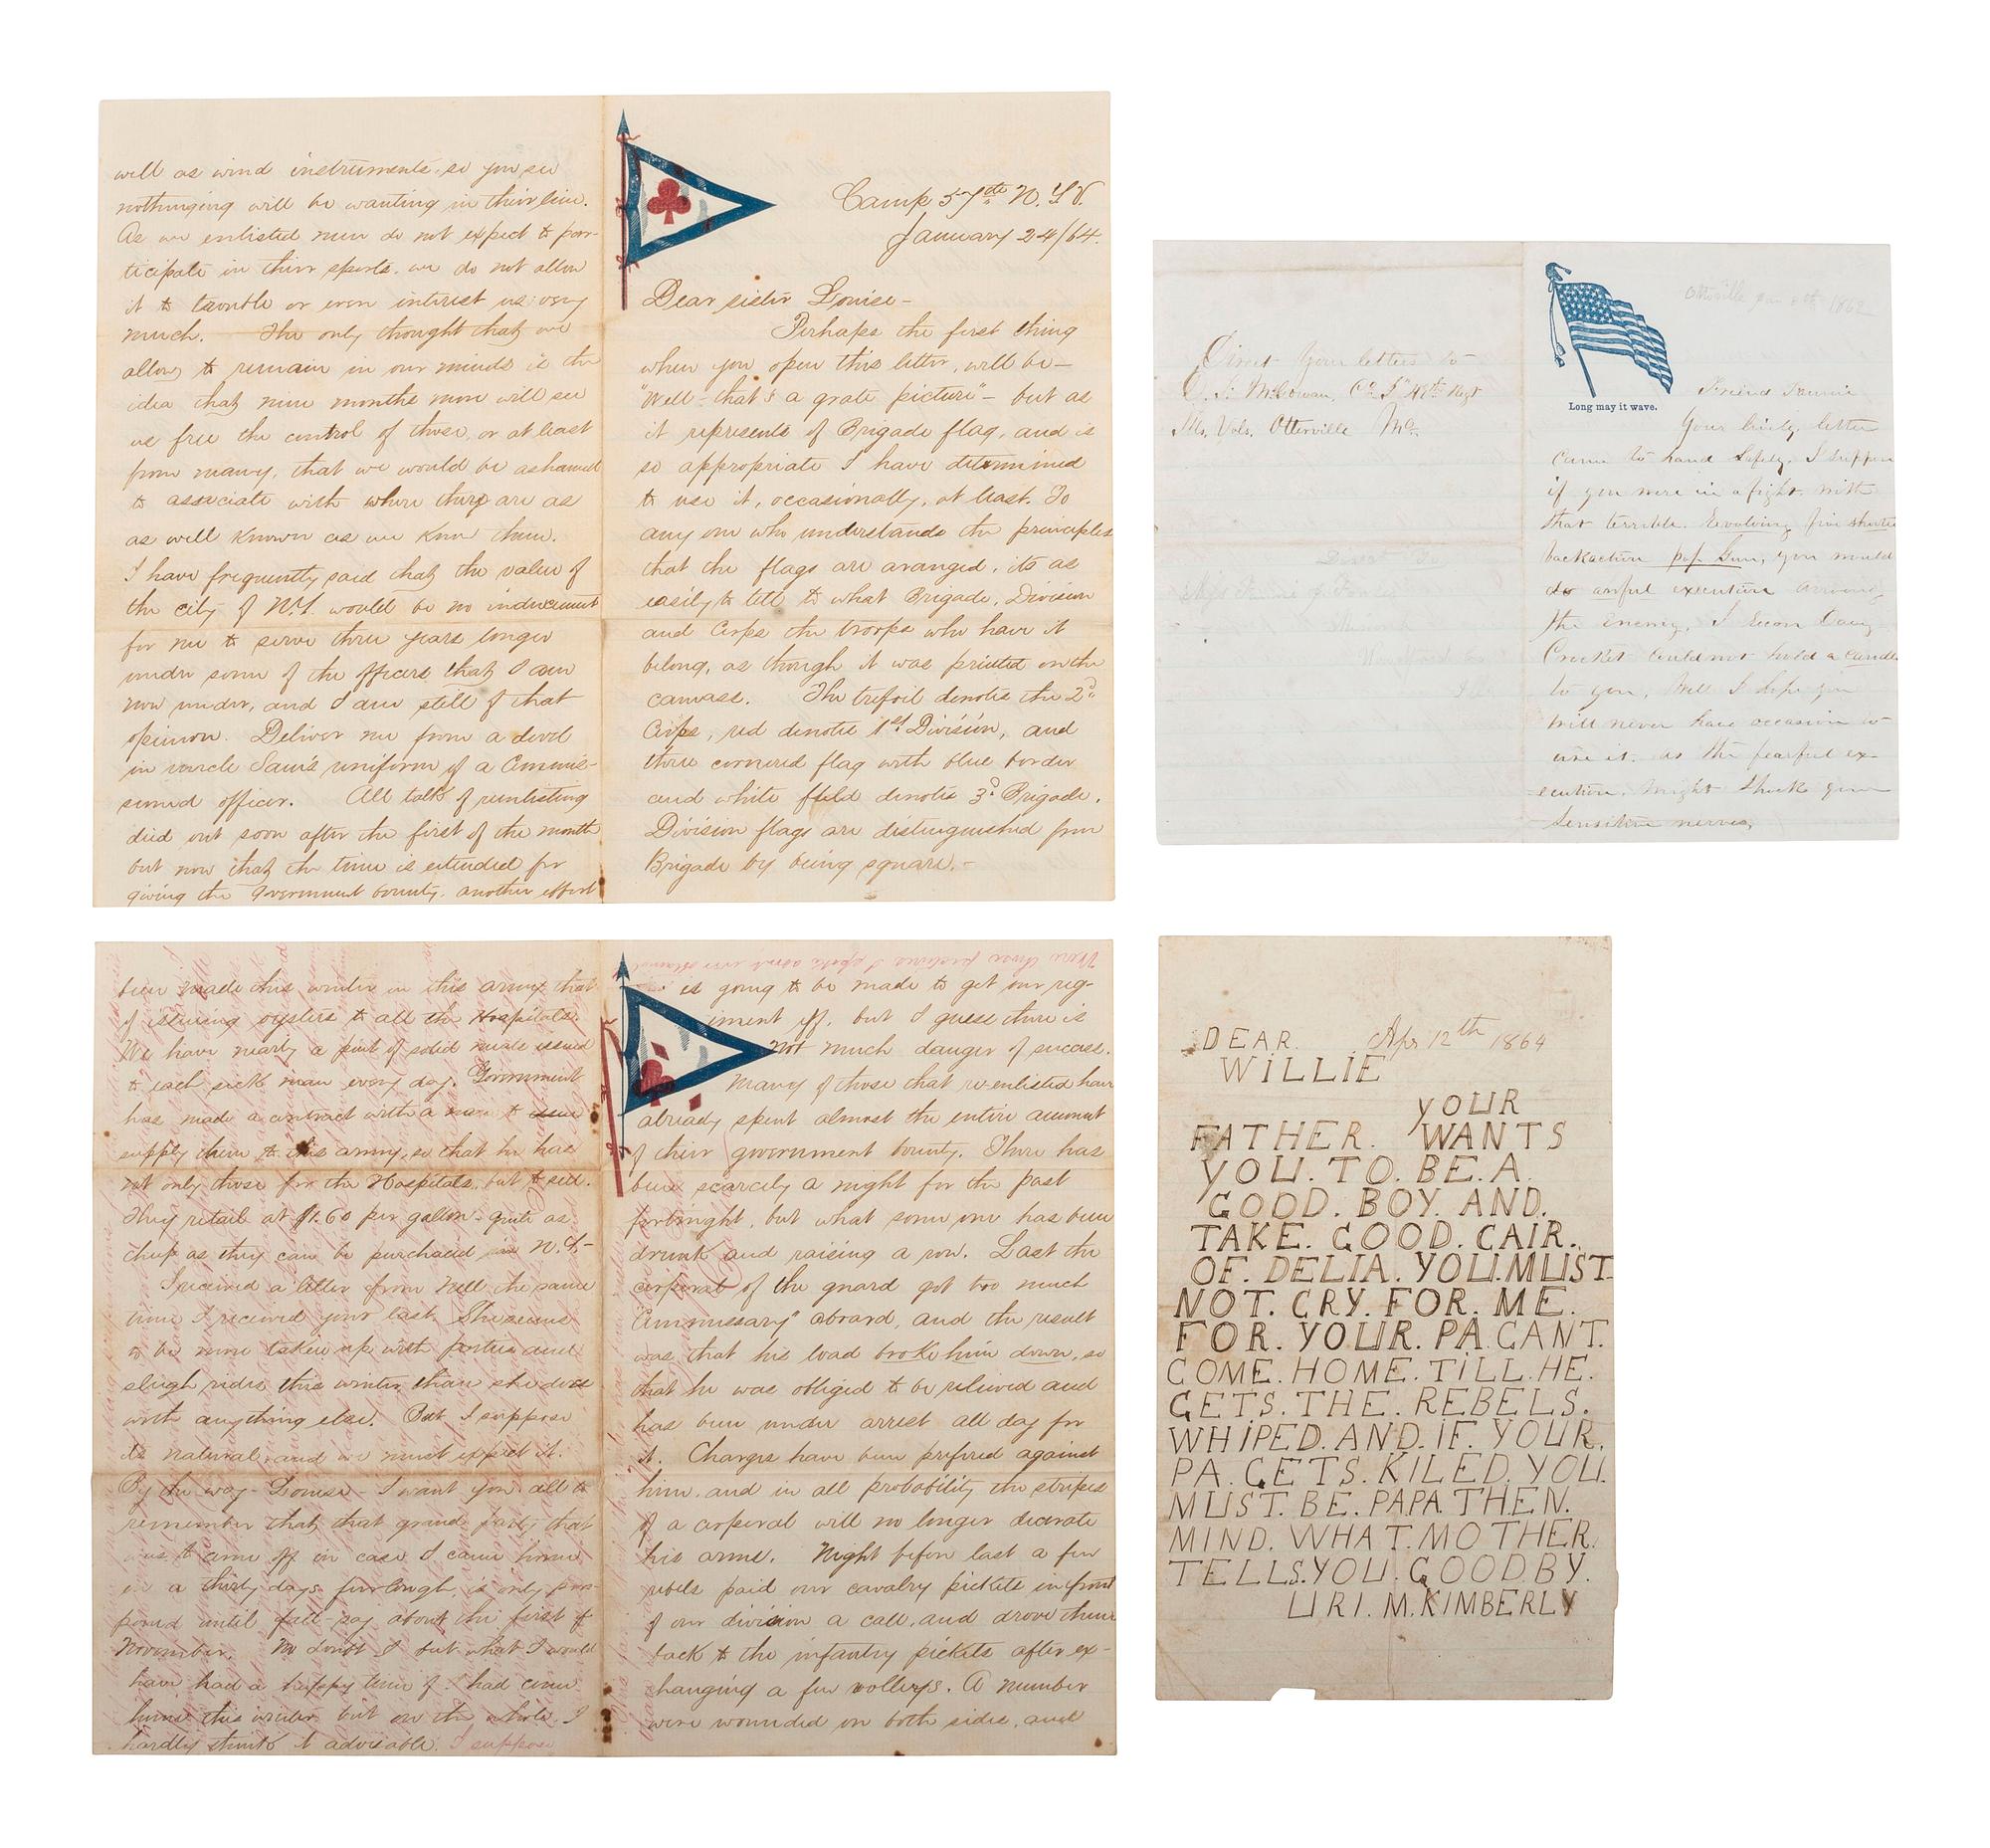 Camp 57th N.Y.V.
January 24/64.
Dear sister Louise-
Perhaps the first thing
when you open this letter, will be-
"Well- that's a grate picture"- but as
it represents of Brigade flag, and is
so appropriate I have determined
to use it, occasionally, at least. To
any one who understands the principles
that the flags are aranged, its as
easily to tell to what Brigade, Division
and Corps the troops who have it
belong, as though it was printed on the
canvass. The trefoil denotes the 2d
Corps, red denotes 1st Division, and
three cornered flag with blue border
and white field denotes 3d Brigade.
Division flags are distinguished from
Brigade by being square.-
will as wind instruments, so you see
nothinging will be wanting in their line.
As we enlisted men do not expect to par-
ticipate in their sports, we do not allow
it to trouble or even interest us very
much. The only thought that we
allow to remain in our minds is the
idea that nine months more will see
us free the control of those, or at least
from many, that we would be ashamed
to associate with where they are as
as well known as we know them.
I have frequently said that the value of
the city of N.Y. would be no inducement
for me to serve three years longer
under some of the officers that I am
now under, and I am still of that
opinion. Deliver me from a devil
in uncle Sam's uniform of a Commis-
sioned officer. All talk of reenlisting
died out soon after the first of the month
but now that the time is extended for
giving the Government bounty, another effort
is going to be made to get our reg-
iment off, but I guess there is
not much danger of success.
Many of those that re-enlisted have
already spent almost the entire amount
of their government bounty. There has
been scarcely a night for the past
fortnight, but what some one has been
drunk and raising a row. Last the
corporal of the guard got too much
"Commissary" aboard, and the result
was that his load broke him down, so
that he was obliged to be relieved and
has been under arrest all day for
it. Charges have been prefered against
him, and in all probability the stripes
of a corporal will no longer decorate
his arms. Night before last a few
rebels paid our cavalry pickets in front
of our division a call, and drove them
back to the infantry pickets after ex-
changing a few volleys. A number
were wounded on both sides, and
been made this winter in this army that
of issuing oysters to all the Hospitals.
We have nearly a pint of solid meats issued
to each sick man every day. Government
has made a contract with a man to issue
supply them to this army, so that he has
not only those for the Hospitals, but to sell.
They retail at $1.60 per gallon- quite as
cheap as they can be purchased in N.Y.-
I received a letter from Nell the same
time I received your last. She seems
to be more taken up with parties and
sleigh rides this winter than she does
with anything else. But I suppose
its natural and we must expect it.
By the way- Louise- I want you all to
remember that that grand party that
was to come off in case I came home
on a thirty days furlough, is only post
poned until fall- say about the first of
November. No doubt I but what I would
have had a happy time if I had come
home this winter, but on the whole, I
hardly think it advisable. I suppose
Otterville Jan 1862
Long may it wave.
Friend Fannie
Your lively letter
came to hand safely. I suppose
if you were in a fight with
that terrible Revolving five shooter
backaction pop Gun, you would
do awful execution among
the enemy. I recon Davy
Crocket could not hold a candle
to you, Well I hope you
will never have occasion to
use it, as the fearful ex-
ecution, might shock your
Sensitive nerves,
Direct Your letters to
McGowan, Co 48th Regt
Ills. Vols. Otterville Mo.
Direct To
DEAR. Apr 12th 1864
WiLLiE
yOUR
FATHER. WANTS
YOU. TO. BE. A.
GOOD. BOY. AND.
TAKE. GOOD. CAIR.
OF. DELIA. YOU.MUST.
NOT. CRY. FOR. ME.
FOR. YOUR. PA CANT.
COME. HOME. TiLL. HE.
GETS. THE. REBELS.
WHiPED. AND. IF. YOUR.
PA. GETS. KILED. YOU.
MUST. BE. PAPA. THEN.
MIND. WHAT. MOTHER.
TELLS.YOU. GOODBY.
URI. M.KIMBERLY